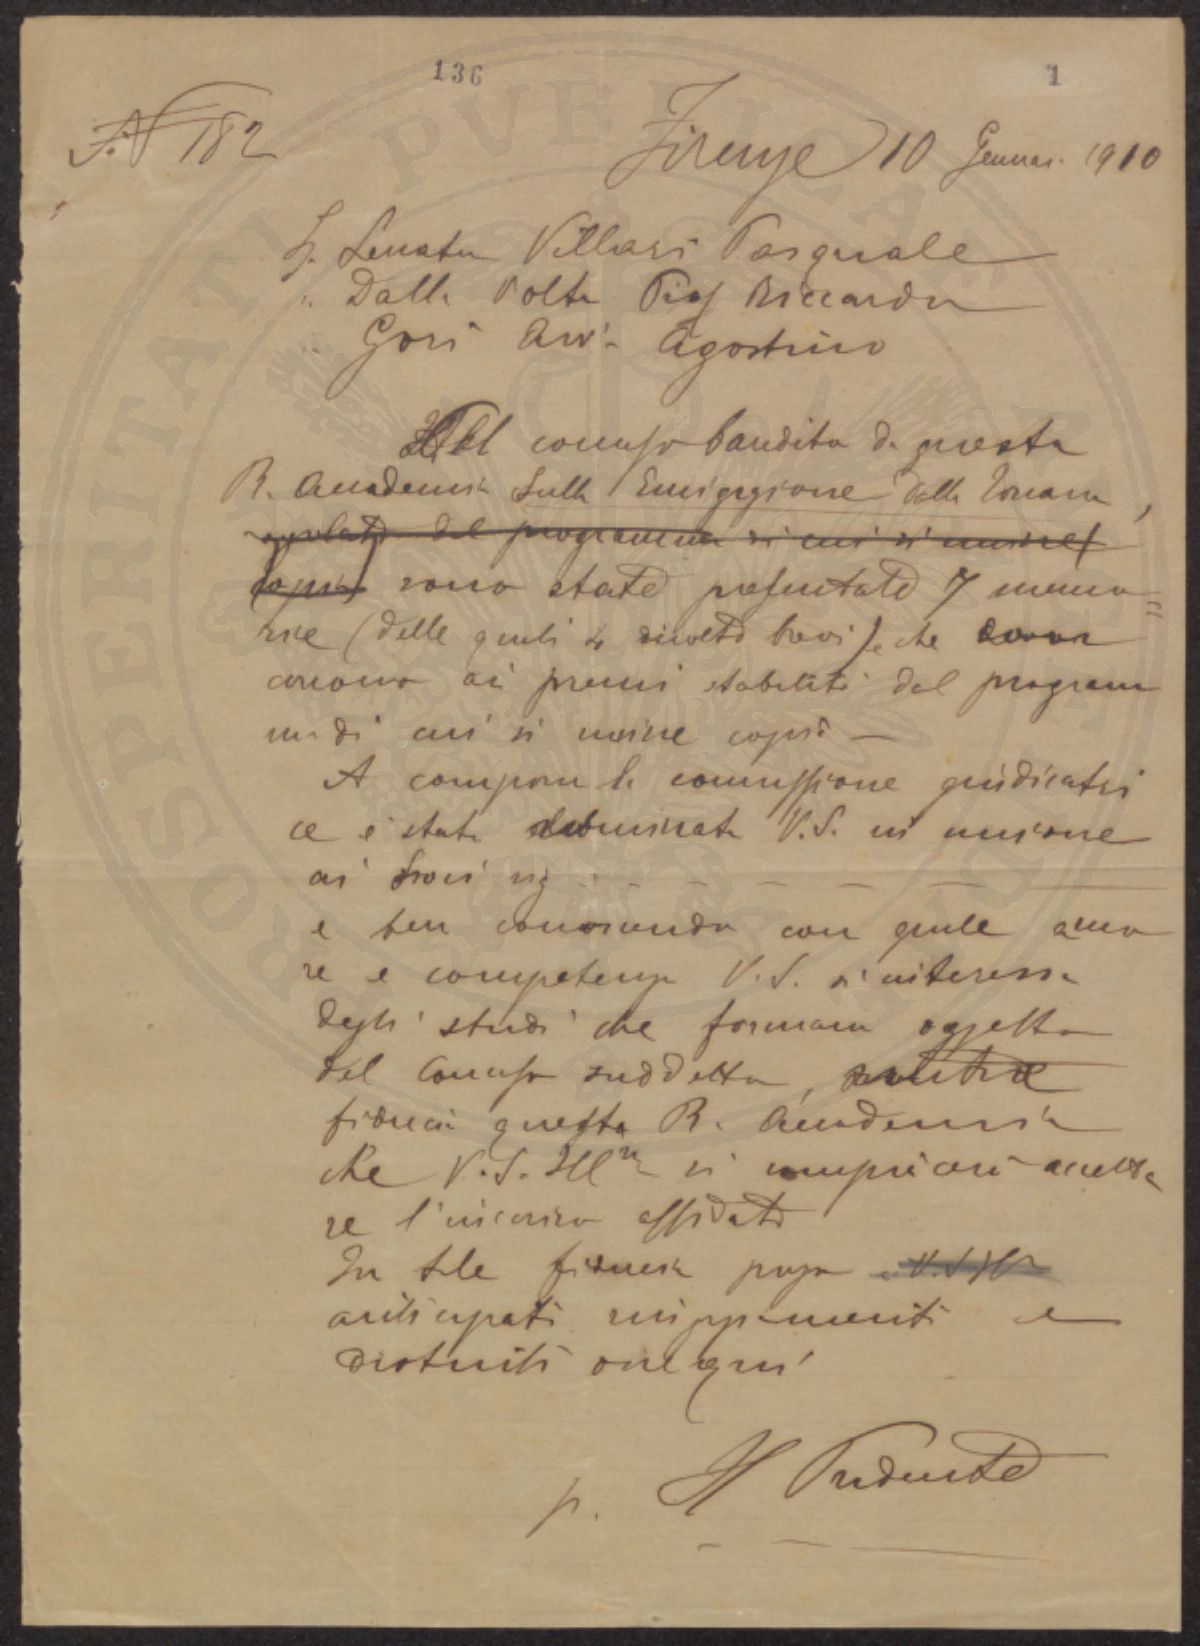 136
1
N 182
Firenze 10 Gennar. 1910
Sr. Senator Villari Pasquale
" Dalla Volta Prof Riccardo
Gori Avv. Agostino
Al concorso bandito da questa
R. Accademia sulla Emigrazione dalla Toscana,
del programma di cui si unisce
copia sono state presentate 7 memo=
rie (delle quali 2 molto brevi) e che
corrono ai premi stabiliti dal program
ma di cui si unisce copia —
A comporre la commissione giudicatri
ce è stata nominata V.S. in unione
ai Soci sig
e ben conoscendo con quale amo
re e competenza V.S. si interessa
degli studi che formano oggetto
del Concorso suddetto,
fiducia questa R. Accademia
che V.S. Illma si compiacerà accetta
re l'incarico affidato
In tale fiducia porgo V.S. Ill
anticipati ringraziamenti e
distinti ossequi
p. Il Presidente
PROSPERITATI PVBLICAE